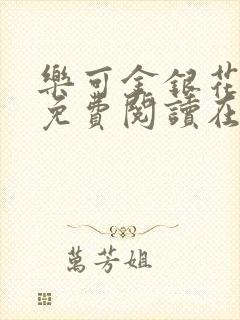 樂可金銀花
免費閱讀在
萬芳姐